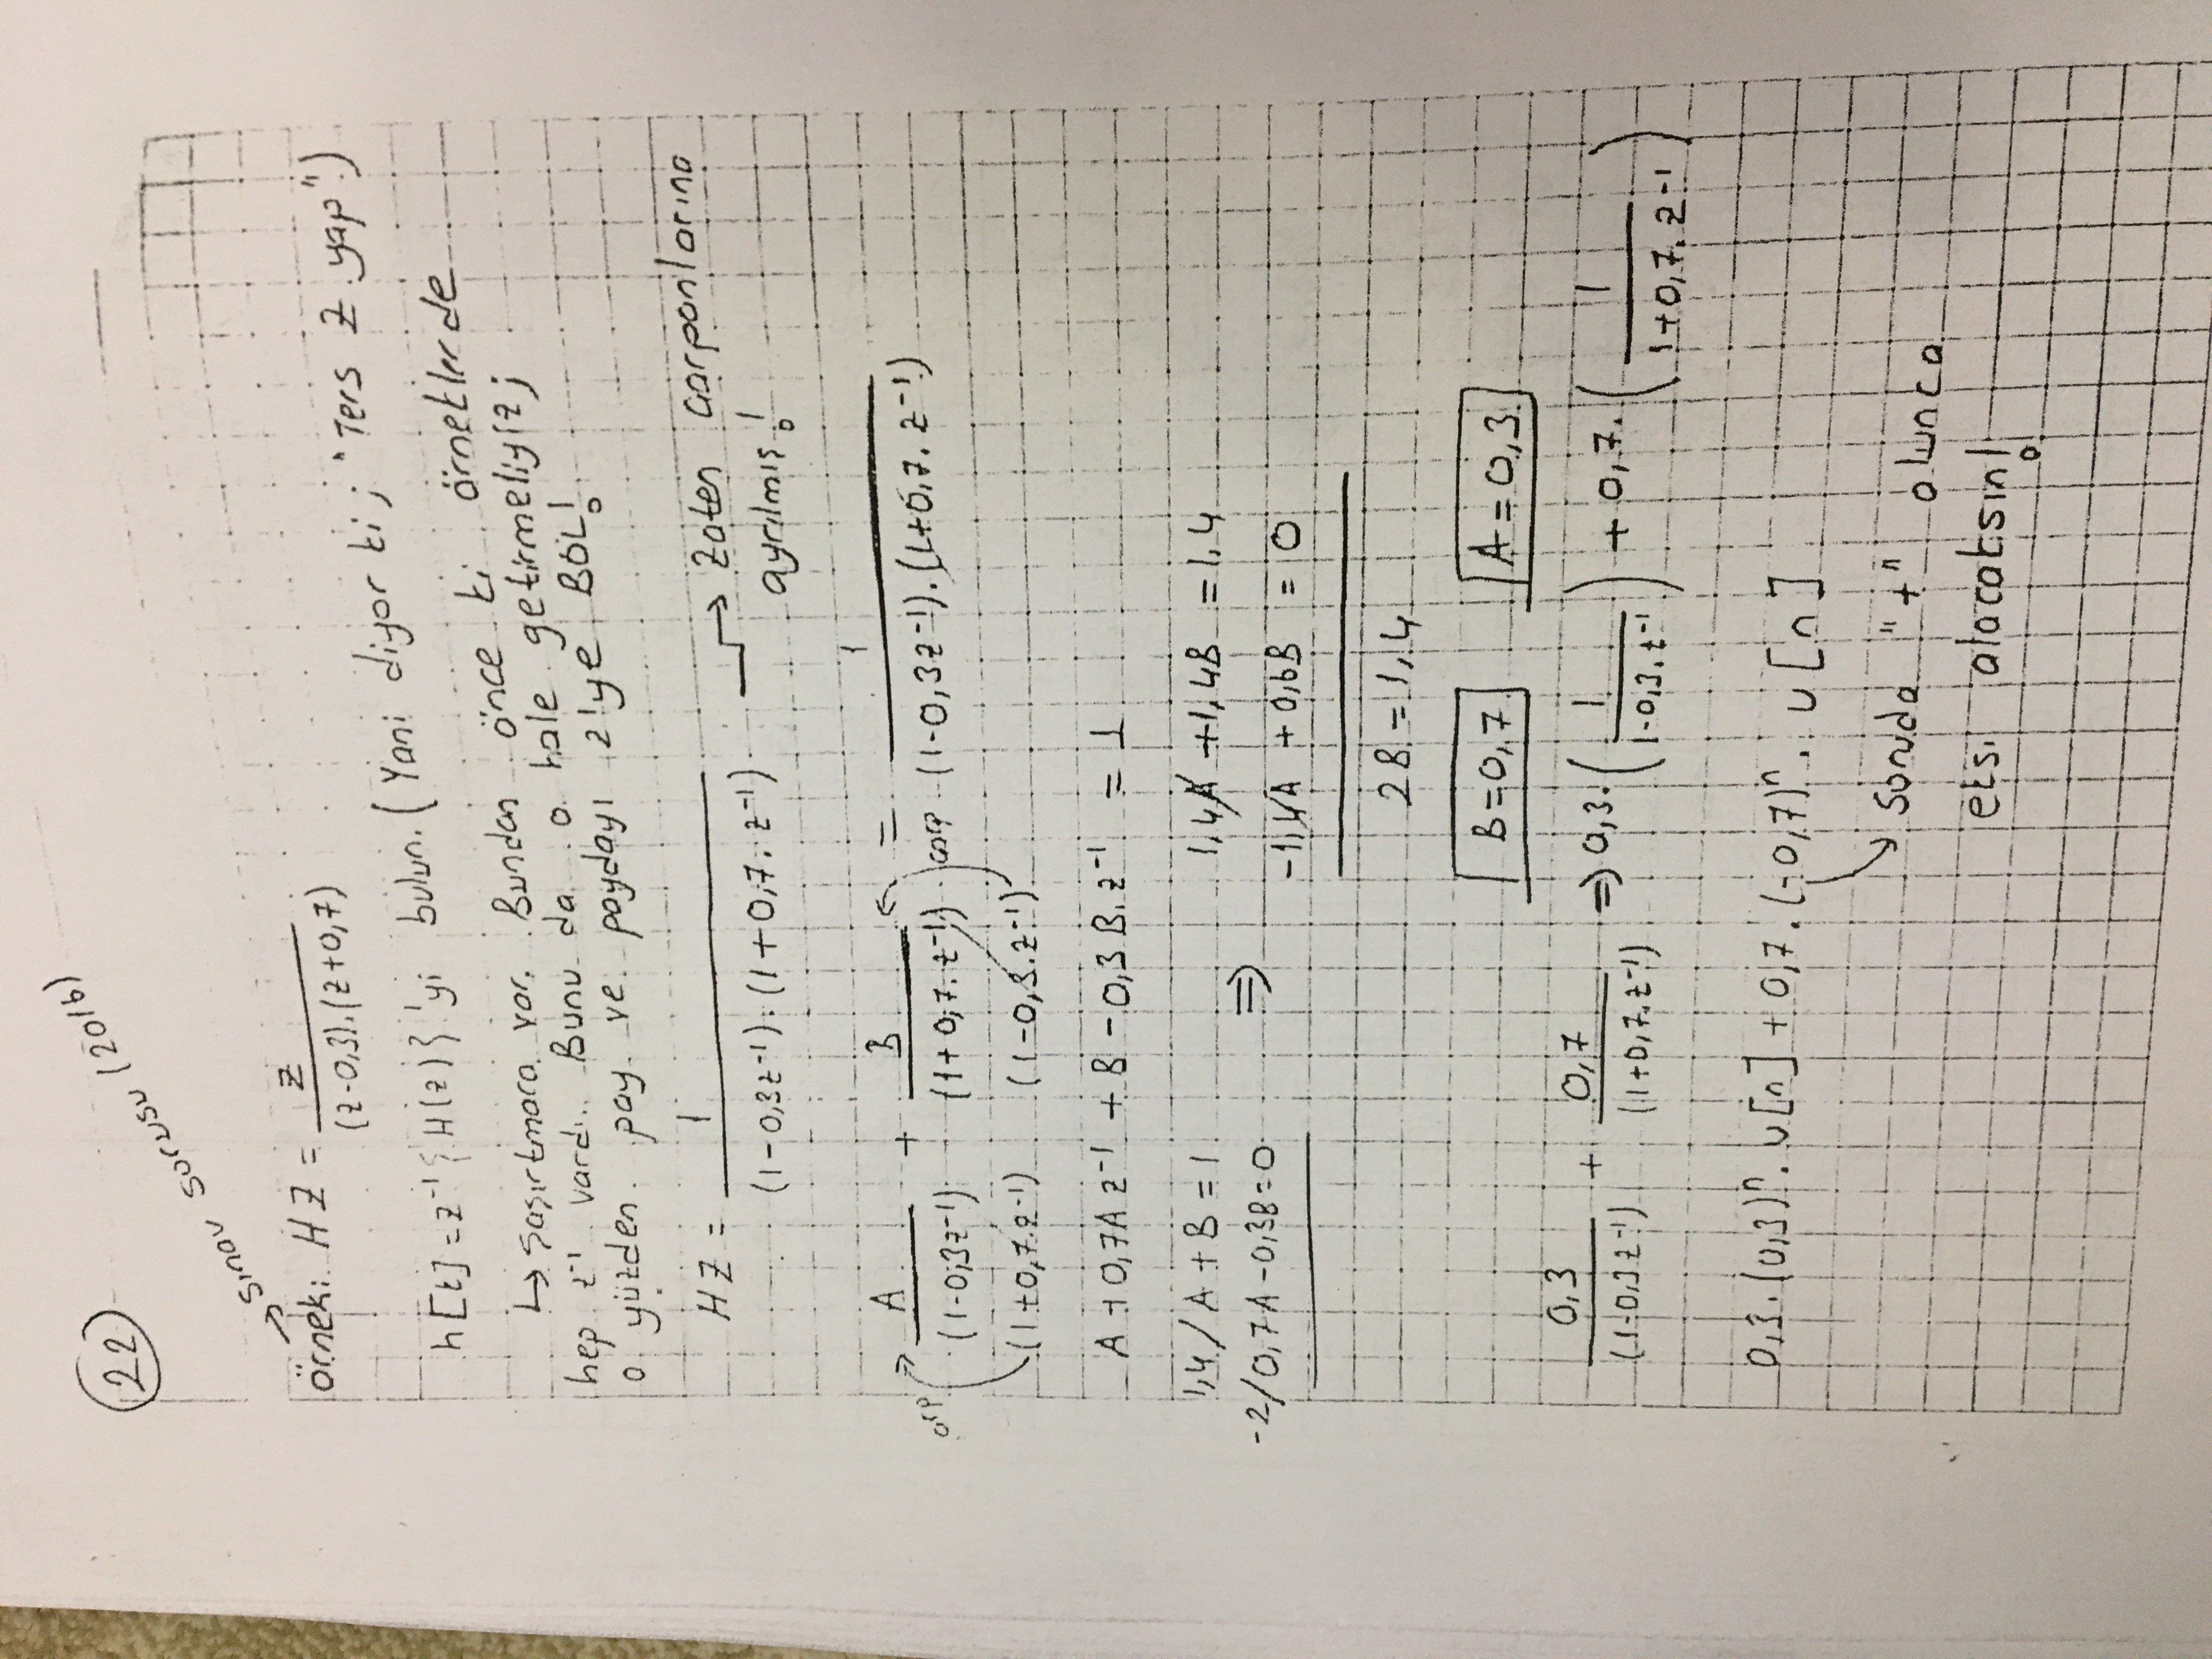 22
→ Sınav Sorusu (2016)
örnek: HZ = z / (z-0,3).(z+0,7)
h[t] = z⁻¹ {H(z)} 'yi bulun. (Yani diyor ki; "Ters Z yap")
↳ Şaşırtmaca var. Bundan önce ki örneklerde
hep z⁻¹ vardı. Bunu da o hale getirmeliyiz;
o yüzden pay ve paydayı z'ye BÖL!
HZ = 1 / (1-0,3z⁻¹).(1+0,7.z⁻¹) → Zaten çarpanlarına
ayrılmış!
A / (1-0,3z⁻¹) + B / (1+0,7.z⁻¹) = 1 / (1-0,3z⁻¹).(1+0,7.z⁻¹)
çarp (1+0,7.z⁻¹) (1-0,3.z⁻¹) çarp
A+0,7A z⁻¹ + B - 0,3B.z⁻¹ = 1
1,4/ A + B = 1 ⇒ 1,4A + 1,4B = 1,4
-2/ 0,7A - 0,3B = 0 -1,4A + 0,6B = 0
2B = 1,4
B = 0,7 A = 0,3
0,3 / (1-0,3z⁻¹) + 0,7 / (1+0,7.z⁻¹) ⇒ 0,3.(1 / 1-0,3.z⁻¹) + 0,7.(1 / 1+0,7.z⁻¹)
0,3.(0,3)ⁿ.u[n] + 0,7.(-0,7)ⁿ.u[n]
↳ Soruda "+" olunca
eksi alacaksın!